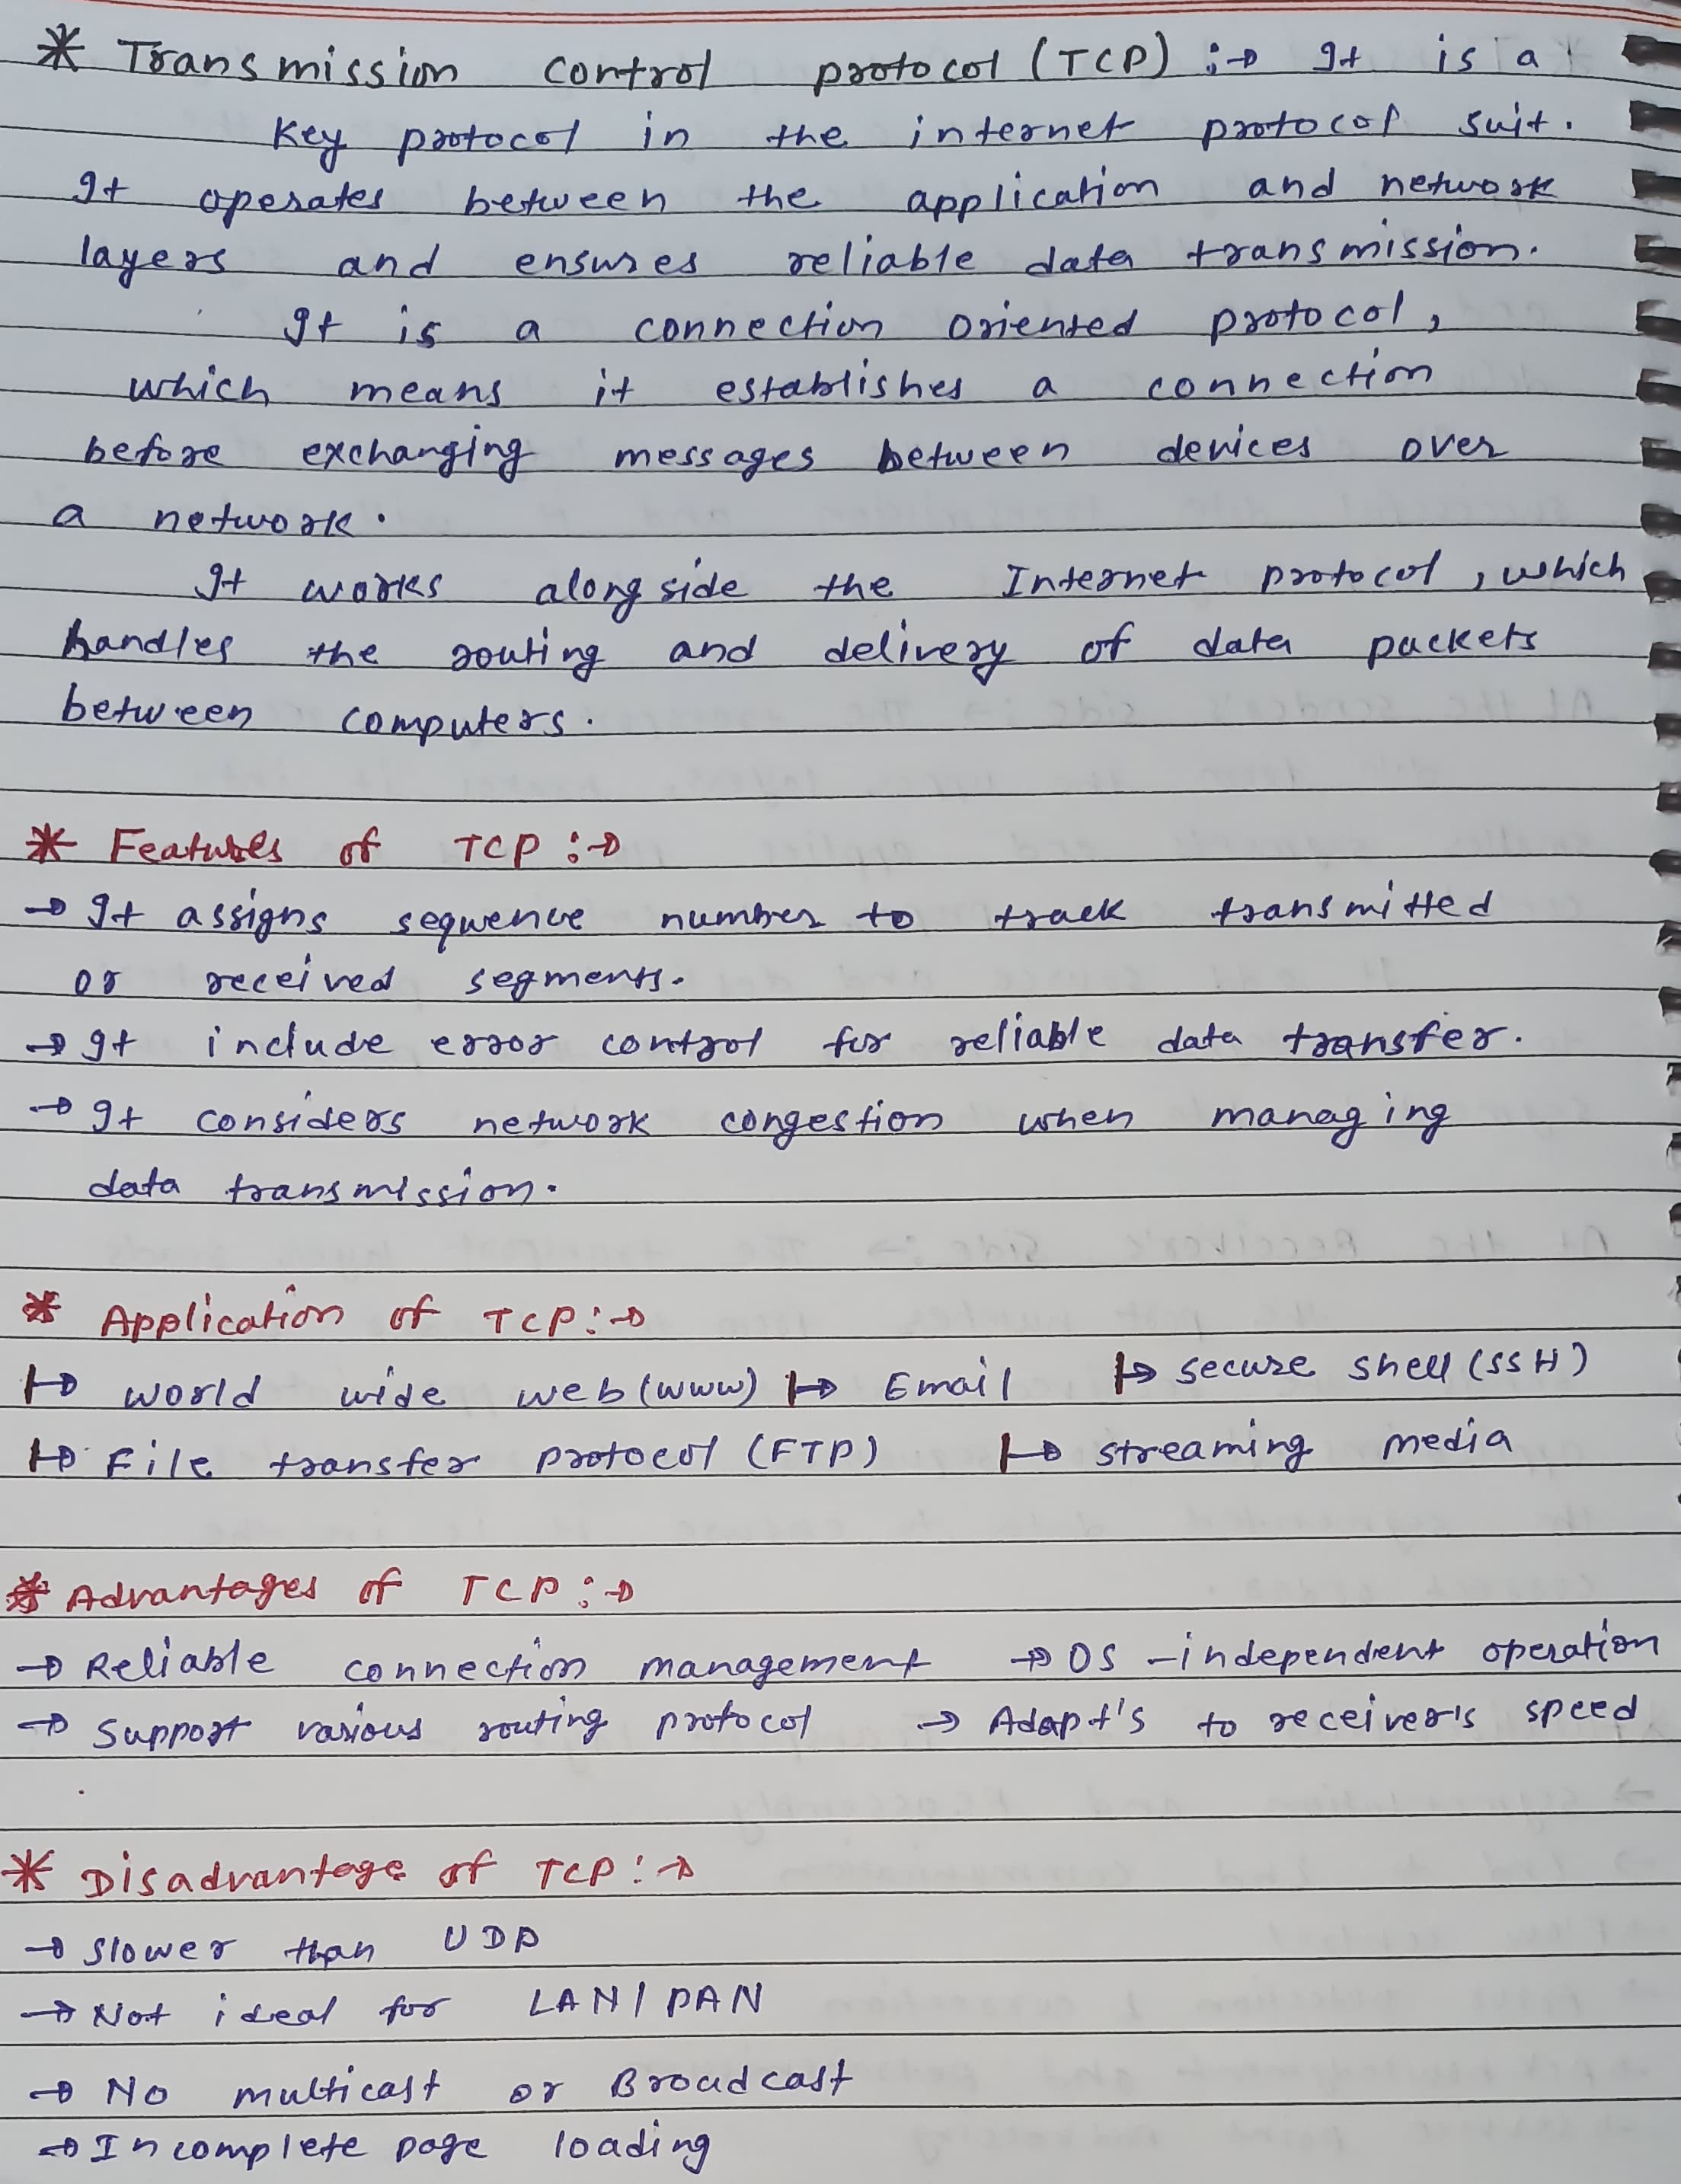 * Transmission control protocol (TCP) :→ It is a
Key protocol in the internet protocol suit.
It operates between the application and network
layers and ensures reliable data transmission.
It is a connection oriented protocol,
which means it establishes a connection
before exchanging messages between devices over
a network.
It works alongside the Internet protocol, which
handles the routing and delivery of data packets
between computers.
* Features of TCP :→
→ It assigns sequence number to track transmitted
or received segments.
→ It include error control for reliable data transfer.
→ It considers network congestion when managing
data transmission.
* Application of TCP :→
↦ World wide web (www) ↦ Email ↦ Secure shell (SSH)
↦ File transfer protocol (FTP) ↦ streaming media
* Advantages of TCP :→
→ Reliable connection management → OS-independent operation
→ Support various routing protocol → Adapt's to receiver's speed
* Disadvantage of TCP :→
→ Slower than UDP
→ Not ideal for LAN/PAN
→ No multicast or Broadcast
→ Incomplete page loading